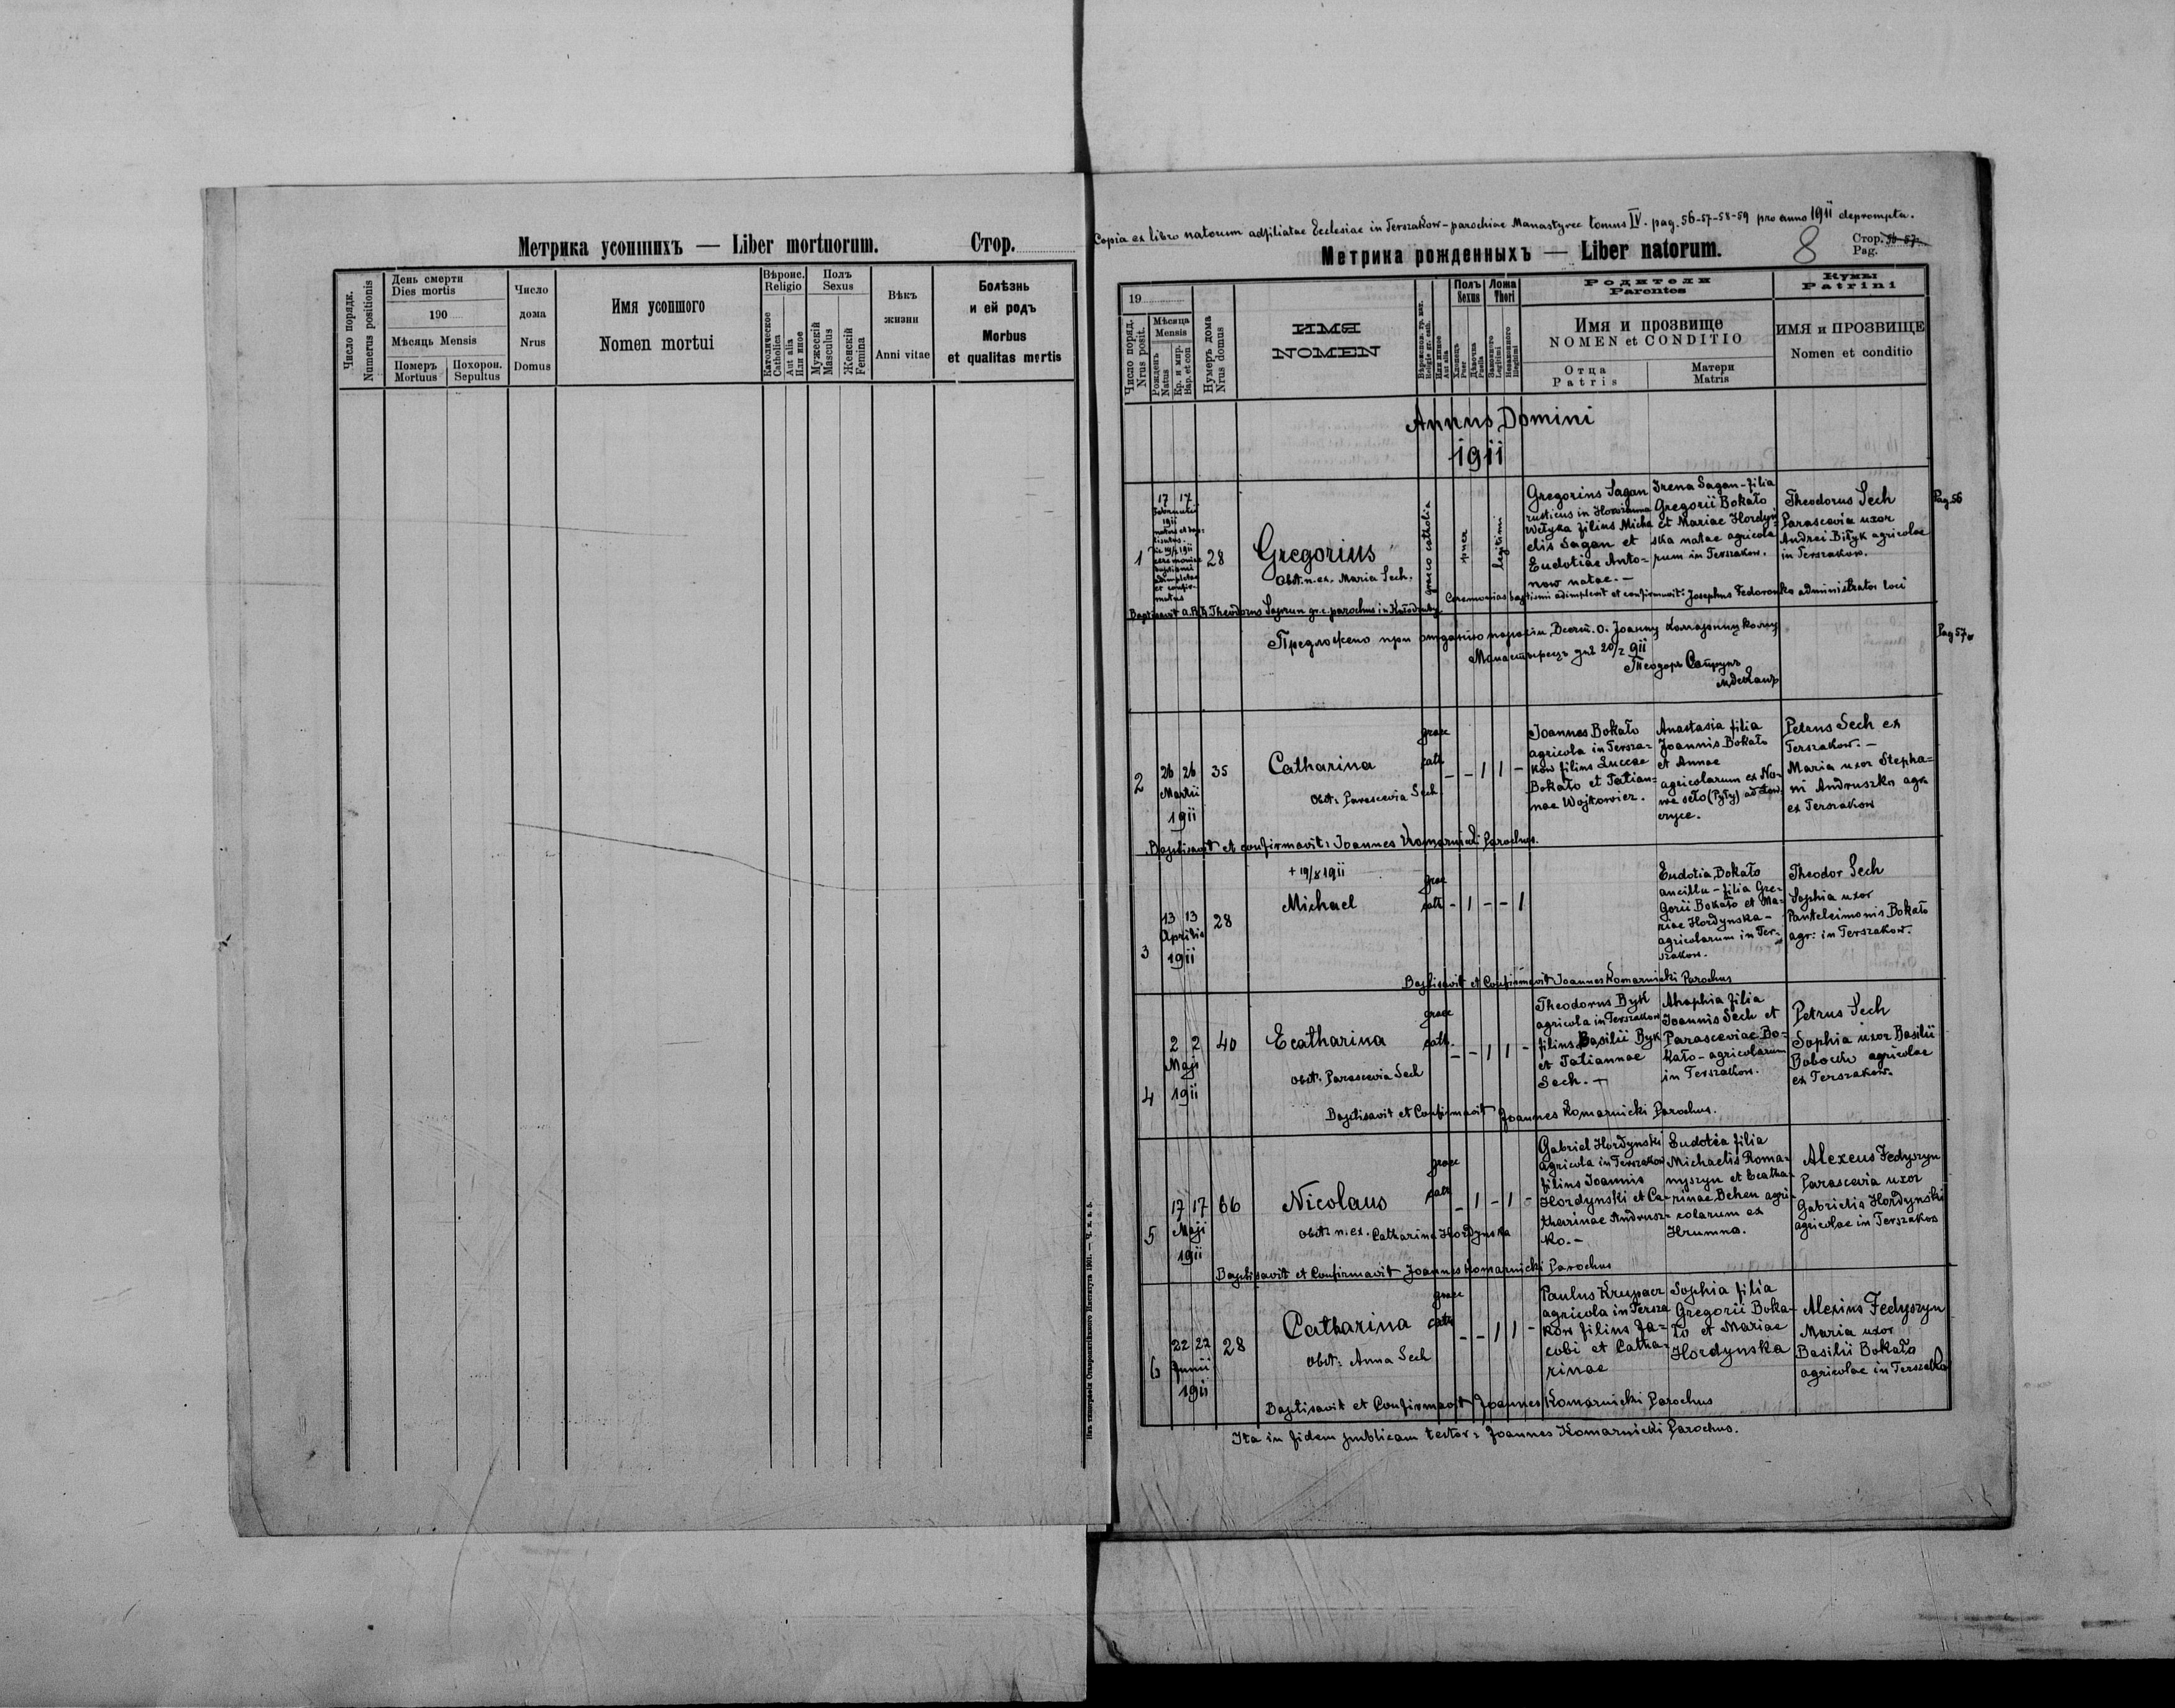 Метрика усопшихъ — Liber mortuorum.
Стор.
Число порядк.
Numerus positionis
День смерти
Dies mortis
190
Мѣсяць Mensis
Померъ
Mortuus
Похорон.
Sepultus
Число
дома
Nrus
Domus
Имя усопшого
Nomen mortui
Вѣроис.
Religio
Католическое
Catholica
Aut alia
Или иное
Полъ
Sexus
Мужескій
Masculus
Женскій
Femina
Вѣкъ
жизни
Anni vitae
Болѣзнь
и ей родъ
Morbus
et qualitas mortis
Изъ типографіи Ставропигійского Института 1901.
Copia ex libro natorum adfiliatae Ecclesiae in Terszakow - parochiae Manastyrec tomus IV. pag. 56-57-58-59 pro anno 1911 deprompta.
Метрика рожденныхъ — Liber natorum.
8
Стор. 56-57.
Pag.
19
Число поряд.
Nrus posit.
Мѣсяца
Mensis
Рожденъ
Natus
Кр. и мир.
Bap. et con.
Нумеръ дома
Nrus domus
ИМЯ
NOMEN
Полъ
Sexus
Хлопецъ
Puer
Дѣвочка
Puella
Ложа
Thori
Законного
Legitimi
Незаконного
Illegitimi
Родители
Parentes
Имя и прозвище
NOMEN et CONDITIO
Отца
Patris
Матери
Matris
Кумы
Patrini
ИМЯ и ПРОЗВИЩЕ
Nomen et conditio
Annus Domini
1911
1
17 17
Februarii
1911
28
Gregorius
Obst. n. ex. Maria Sech.
graeco catholica
puer
legitimi
Gregorius Sagan
rusticus in Horożanna
Wełyka filius Micha
elis Sagan et
Eudotiae Anto-
now natae. -
Irena Sagan - filia
Gregorii Bokało
et Mariae Hordyń
ska natae agricola
rum in Terszakow.
Theodorus Sech
Parascevia uxor
Andrei Biłyk agricolae
in Terszakow.
Pag. 56
Ceremonias baptismi adimplevit et confirmavit: Josephus Fedoronko administrator loci
Baptisavit a. R. D. Theodorus Saprun gr. c. parochus in Kołodruby.
Предложено при отданію парохіи Всечн. о. Іоанну Комарницкому
Монастырець дня 20/2 911
Теодоръ Сапрунъ
Pag 57
2
26 26
Martii
1911
35
Catharina
Obst: Parascevia Sech
graec
cath
- - 1 1 -
Joannes Bokało
agricola in Tersza-
kow filius Luccae
Bokało et Tatian-
nae Wojtowicz.
Anastasia filia
Joannis Bokało
et Annae
agricolarum ex No-
we seło (Pyły)
Petrus Sech ex
Terszakow. -
Maria uxor Stepha-
ni Andruszko agr.
ex Terszakow
Baptisavit et confirmavit: Joannes Komarnicki Parochus.
3
13 13
Aprilis
1911
28
+ 19/8 1911
Michael
grae
cath
- 1 - - 1
Eudotia Bokało
ancilla - filia Gre-
gorii Bokało et Ma-
riae Hordynska -
agricolarum in Ter-
szakow.
Theodor Sech
Sophia uxor
Panteleimonis Bokało
agr: in Terszakow.
Baptisavit et Confirmavit Joannes Komarnicki Parochus
4
2 2
Maji
1911
40
Ecatharina
Obst: Parascevia Sech
graec
cath.
- - 1 1 -
Theodorus Byk
agricola in Terszakow
filius Basilii Byk
et Tatiannae
Sech. -
Ahaphia filia
Joannis Sech et
Parasceviae Bo-
kało - agricolarum
in Terszakow.
Petrus Sech
Sophia uxor Basilii
agricolae
ex Terszakow.
Baptisavit et Confirmavit Joannes Komarnicki Parochus.
5
17 17
Maji
1911
66
Nicolaus
Obst: n. ex. Catharina Hordynska
graec
cath
- 1 - 1 -
Gabriel Hordynski
agricola in Terszakow
filius Joannis
Hordynski et Ca-
tharinae Andrusz-
ko. -
Eudotia filia
Michaelis Roma-
nyszyn et Ecatha
rinae Behen agri-
colarum ex
Hrumna.
Alexeus Fedyszyn
Parascevia uxor
Gabrielis Hordynski
agricolae in Terszakow
Baptisavit et Confirmavit Joannes Komarnicki Parochus
6
22 22
Junii
1911
28
Catharina
Obst: Anna Sech
graec
cath
- - 1 1 -
Paulus Krupacz
agricola in Tersza
kow filius Ja-
cobi et Catha-
rinae
Sophia filia
Gregorii Boka-
ło et Mariae
Hordynska
Alexius Fedyszyn
Maria uxor
Basilii Bokało
agricolae in Terszako
Baptisavit et Confirmavit Joannes Komarnicki Parochus
Ita in fidem publicam testor: Joannes Komarnicki Parochus.